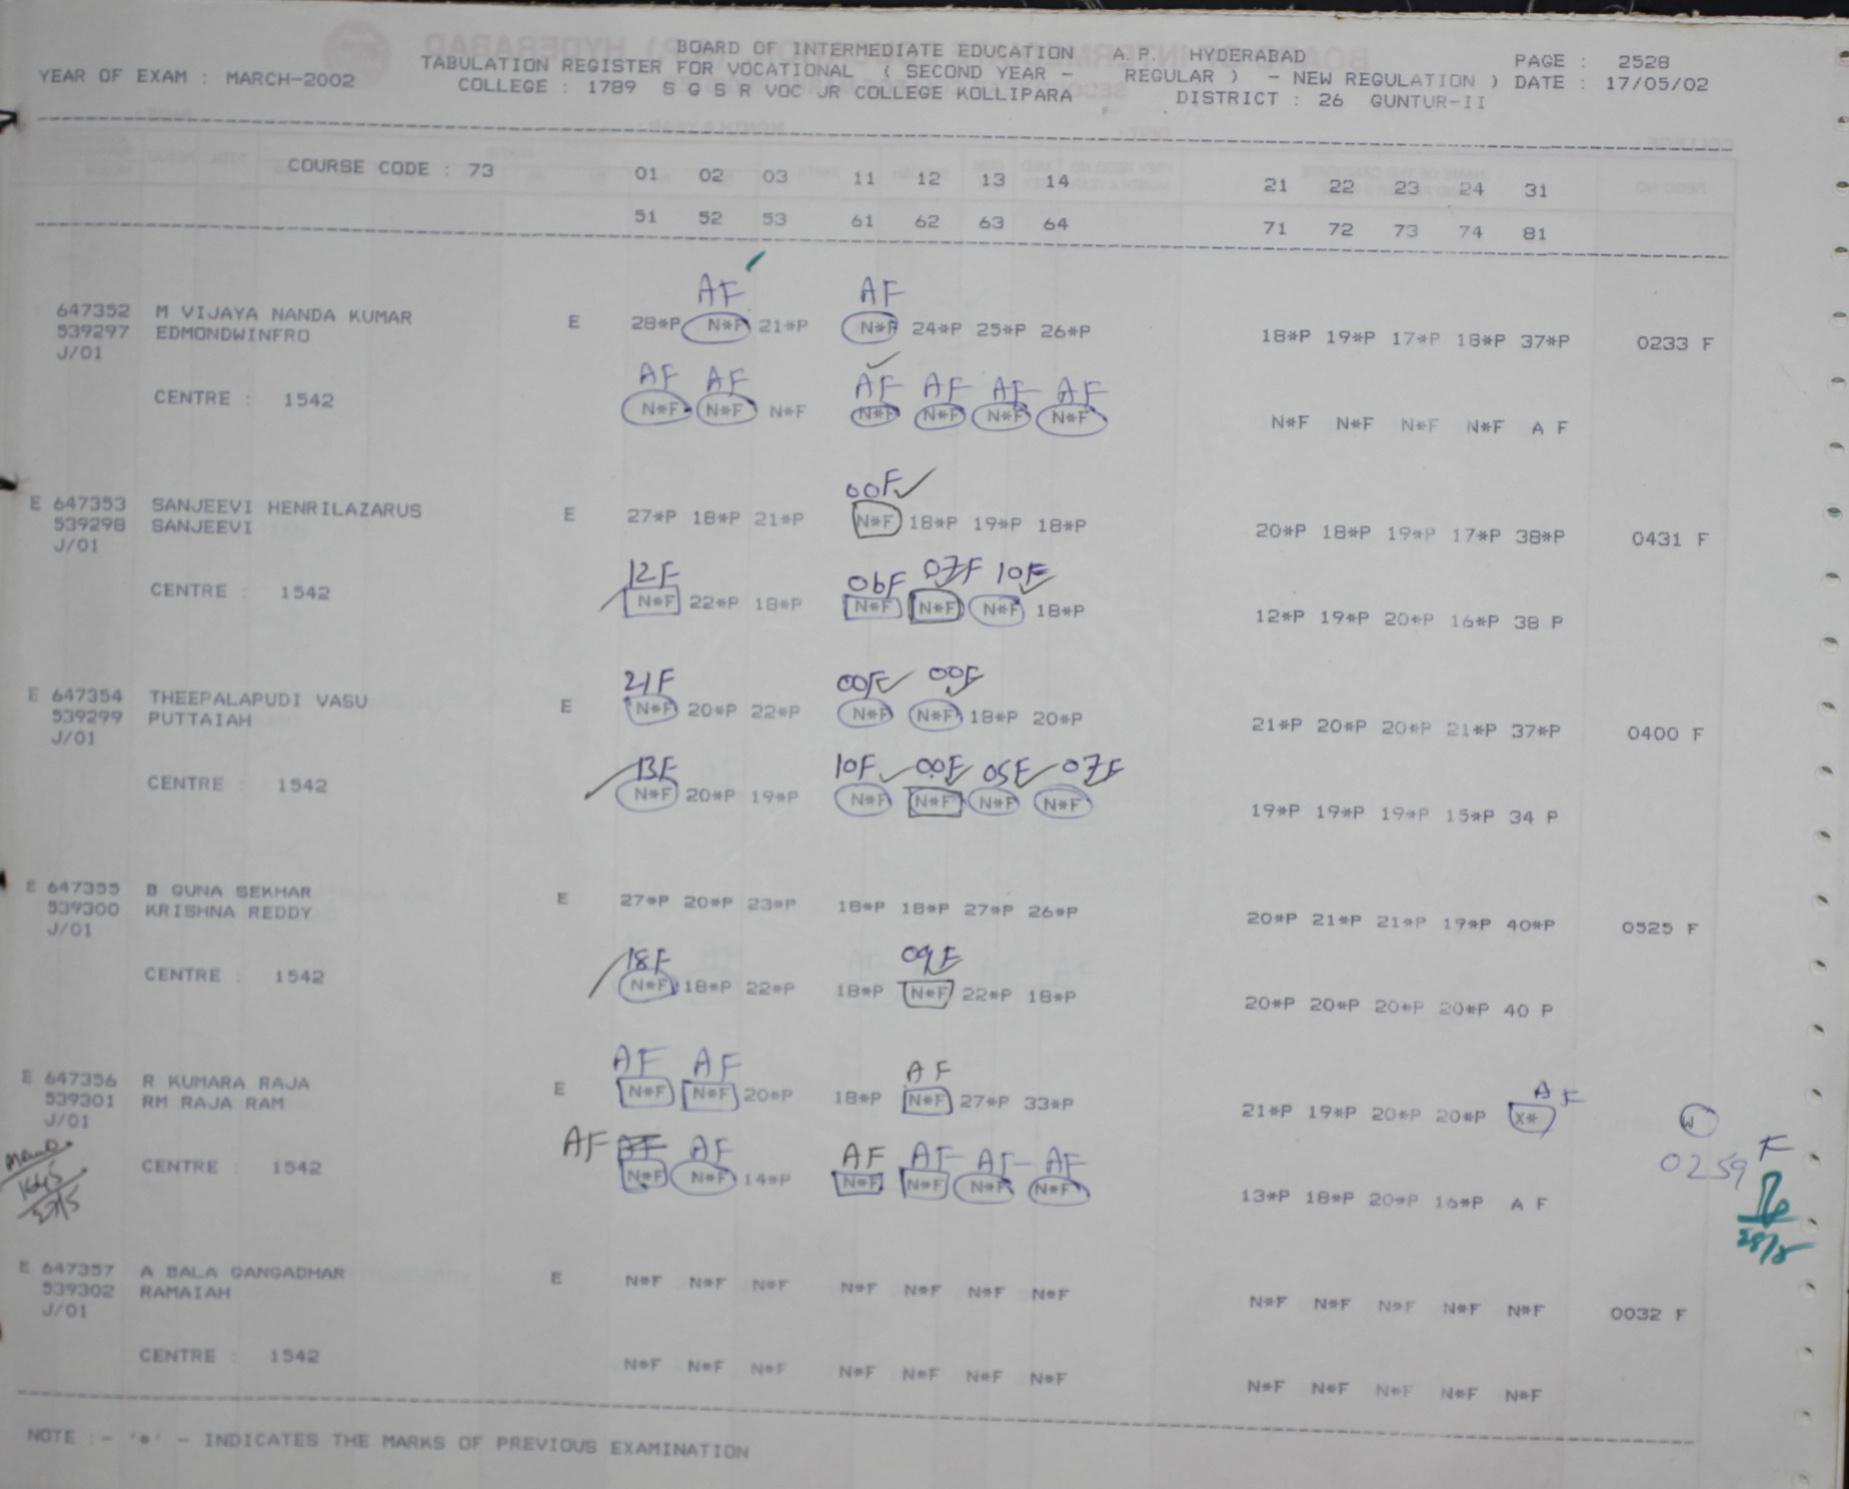 BOARD OF INTERMEDIATE EDUCATION A.P. HYDERABAD PAGE : 2528
YEAR OF EXAM : MARCH-2002 TABULATION REGISTER FOR VOCATIONAL ( SECOND YEAR - REGULAR ) - NEW REGULATION ) DATE : 17/05/02
COLLEGE : 1789 S G S R VOC JR COLLEGE KOLLIPARA DISTRICT : 26 GUNTUR-II
COURSE CODE : 73 01 02 03 11 12 13 14 21 22 23 24 31
51 52 53 61 62 63 64 71 72 73 74 81
AF AF
647352 M VIJAYA NANDA KUMAR E 28*P N*F 21*P N*F 24*P 25*P 26*P 18*P 19*P 17*P 18*P 37*P 0233 F
539297 EDMONDWINFRO
J/01
AF AF AF AF AF AF
CENTRE : 1542 N*F N*F N*F N*F N*F N*F N*F N*F N*F N*F N*F A F
00F
E 647353 SANJEEVI HENRILAZARUS E 27*P 18*P 21*P N*F 18*P 19*P 18*P 20*P 18*P 19*P 17*P 38*P 0431 F
539298 SANJEEVI
J/01
12F 06F 07F 10F
CENTRE : 1542 N*F 22*P 18*P N*F N*F N*F 18*P 12*P 19*P 20*P 16*P 38 P
21F 00F 00F
E 647354 THEEPALAPUDI VASU E N*F 20*P 22*P N*F N*F 18*P 20*P 21*P 20*P 20*P 21*P 37*P 0400 F
539299 PUTTAIAH
J/01
13F 10F 00F 05F 07F
CENTRE : 1542 N*F 20*P 19*P N*F N*F N*F N*F 19*P 19*P 19*P 15*P 34 P
E 647355 B GUNA SEKHAR E 27*P 20*P 23*P 18*P 18*P 27*P 26*P 20*P 21*P 21*P 19*P 40*P 0525 F
539300 KRISHNA REDDY
J/01
18F 09F
CENTRE : 1542 N*F 18*P 22*P 18*P N*F 22*P 18*P 20*P 20*P 20*P 20*P 40 P
AF AF AF A F
E 647356 R KUMARA RAJA E N*F N*F 20*P 18*P N*F 27*P 33*P 21*P 19*P 20*P 20*P X* W
539301 RM RAJA RAM
J/01
AF AF AF AF AF AF 0259 F
CENTRE : 1542 N*F N*F 14*P N*F N*F N*F N*F 13*P 18*P 20*P 16*P A F
27/5
28/5
E 647357 A BALA GANGADHAR E N*F N*F N*F N*F N*F N*F N*F N*F N*F N*F N*F N*F 0032 F
539302 RAMAIAH
J/01
CENTRE : 1542 N*F N*F N*F N*F N*F N*F N*F N*F N*F N*F N*F N*F
NOTE :- '*' - INDICATES THE MARKS OF PREVIOUS EXAMINATION